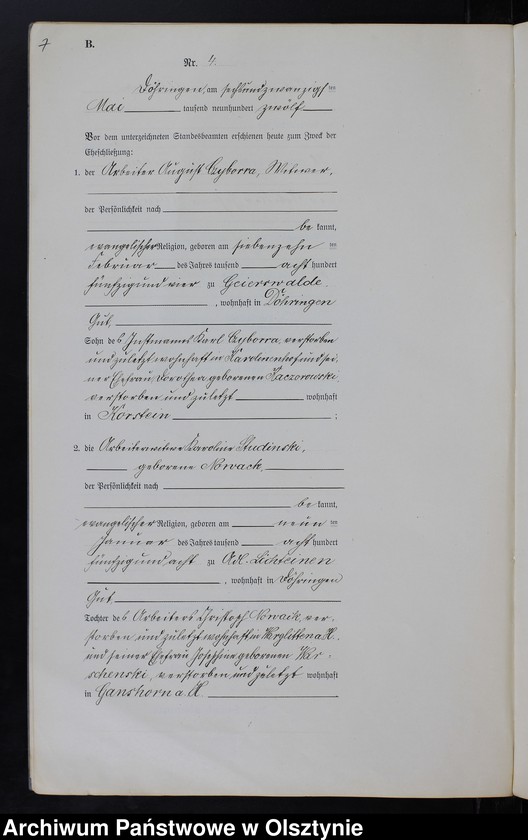 7
B.
Nr. 4.
Döhringen, am sechsundzwanzigsten
Mai tausend neunhundert zwölf
Vor dem unterzeichneten Standesbeamten erschienen heute zum Zweck der
Eheschließung:
1. der Arbeiter August Cyborra, Witwer,
der Persönlichkeit nach
be kannt,
evangelischer Religion, geboren am siebenzehn ten
Februar des Jahres tausend acht hundert
fünfzig und vier zu Geierswalde
, wohnhaft in Döhringen
Gut,
Sohn des Instmannes Karl Cyborra, verstorben
und zuletzt wohnhaft in Karolinenhof und sei-
ner Ehefrau Dorothea geborenen Kaczorowski,
verstorben und zuletzt wohnhaft
in Körstein ;
2. die Arbeiterwitwe Karoline Studinski,
geborene Nowack,
der Persönlichkeit nach
be kannt,
evangelischer Religion, geboren am neun ten
Januar des Jahres tausend acht hundert
fünfzig und acht zu Adl. Lichteinen
, wohnhaft in Döhringen
Gut,
Tochter des Arbeiters Christoph Nowack, ver-
storben und zuletzt wohnhaft in
und seiner Ehefrau Josephine geborenen
verstorben und zuletzt wohnhaft
in Ganshorn
Archiwum Państwowe w Olsztynie